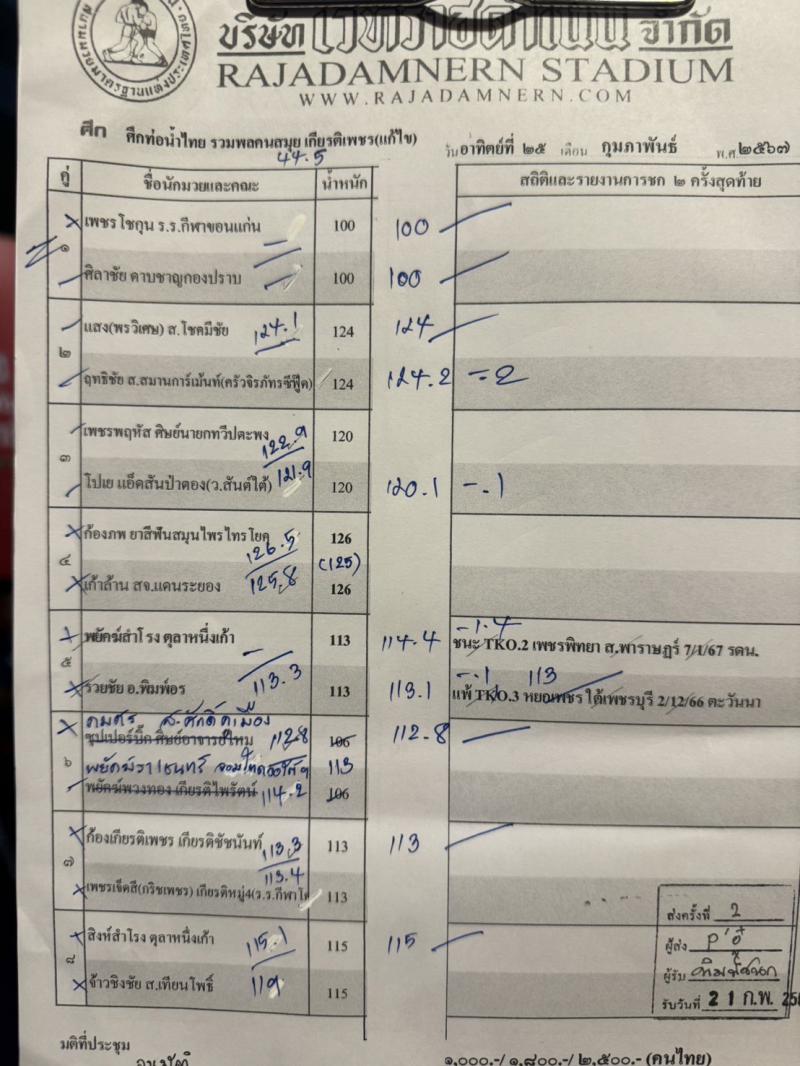 บริษัท เวทีราชดำเนิน จำกัด
RAJADAMNERN STADIUM
WWW.RAJADAMNERN.COM
ศึก ศึกท่อน้ำไทย รวมพลคนสมุย เกียรติเพชร(แก้ไข) วันอาทิตย์ที่ ๒๕ เดือน กุมภาพันธ์ พ.ศ ๒๕๖๗
44.5
คู่ ชื่อนักมวยและคณะ น้ำหนัก สถิติและรายงานการชก ๒ ครั้งสุดท้าย
๑ เพชร โชกุน ร.ร.กีฬาขอนแก่น 100 100
ศิลาชัย ดาบชาญกองปราบ 100 100
๒ แสง(พรวิเศษ) ส.โชคมีชัย 124.1 124 124
ฤทธิชัย ส.สมานการ์เม้นท์(ครัวจิรภัทรซีฟู๊ด) 124 124.2 -.2
๓ เพชรพฤหัส ศิษย์นายกทวีปตะพง 122.9 120
โปเย แอ็ดสันป่าตอง(ว.สันต์ใต้) 121.9 120 120.1 -.1
๔ ก้องภพ ยาสีฟันสมุนไพรไทรโยค 126.5 126
(125)
เก้าล้าน สจ.แดนระยอง 125.8 126
๕ พยัคฆ์สำโรง ตุลาหนึ่งเก้า 113 114.4 -1.4 ชนะ TKO.2 เพชรพิทยา ส.พาราษฎร์ 7/1/67 รดน.
รวยชัย อ.พิมพ์อร 113.3 113 113.1 -.1 113 แพ้ TKO.3 หยกเพชร ใต้เพชรบุรี 2/12/66 ตะวันนา
๖ คมศร ส.ศักดิ์เมือง
ซุปเปอร์บิ๊ก ศิษย์อาจารย์ใหม่ 112.8 106 112.8
113
พยัคฆ์พวงทอง เกียรติไพรัตน์ 114.2 106
๗ ก้องเกียรติเพชร เกียรติชัชนันท์ 113.3 113 113
113.4
เพชรเจ็ดสี(กริชเพชร) เกียรติหมู่4(ร.ร.กีฬาโค 113
๘ สิงห์สำโรง ตุลาหนึ่งเก้า 115.1 115 115
จ้าวชิงชัย ส.เทียนโพธิ์ 119 115
ส่งครั้งที่ 2
ผู้ส่ง
ผู้รับ
รับวันที่ 21 ก.พ. 25
มติที่ประชุม
๑,๐๐๐.-/ ๑,๘๐๐.-/ ๒,๕๐๐.- (คนไทย)